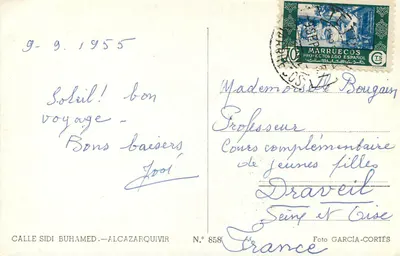 9-9.1955
Soleil! bon
voyage -
Bons baisers
José
MARRUECOS
PROTECTORADO ESPAÑOL
Mademoiselle Bougain
Professeur
Cours complémentaire
de jeunes filles
Draveil
Seine et Oise
France
CALLE SIDI BUHAMED.—ALCAZARQUIVIR
N.º 858
Foto GARCIA-CORTÉS